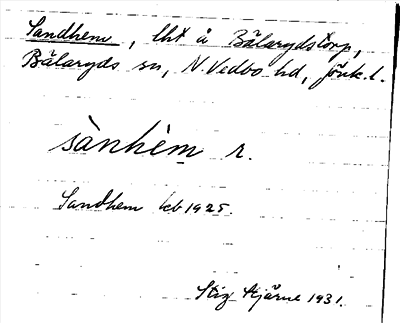 Sandhem, lht å Bälarydstorp,
Bälaryds sn, N. Vedbo hd, Jönk. l.
sànhèm r.
Sandhem kb 1925.
Stig Hjärne 1931.